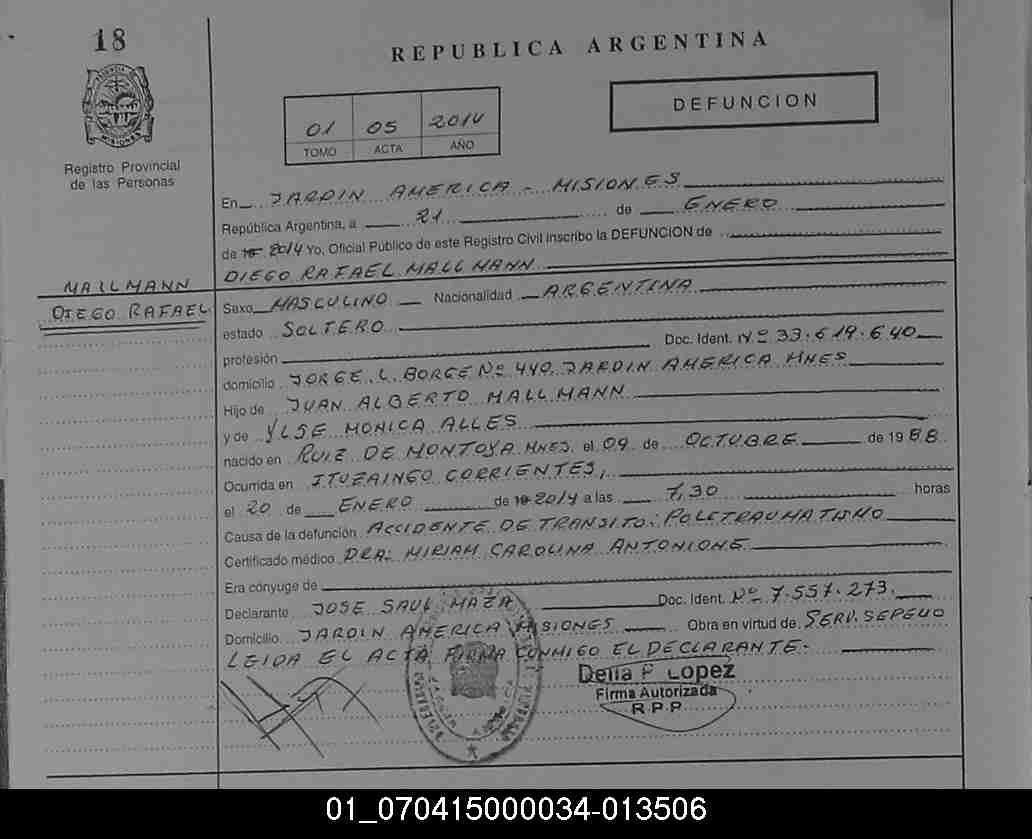 18
REPUBLICA ARGENTINA
DEFUNCION
01 05 2014
TOMO ACTA AÑO
Registro Provincial
de las Personas
En JARDIN AMERICA - MISIONES
República Argentina, a 21 de ENERO
de 2014 Yo, Oficial Público de este Registro Civil inscribo la DEFUNCION de
DIEGO RAFAEL MALLMANN
MALLMANN
DIEGO RAFAEL
Sexo MASCULINO Nacionalidad ARGENTINA
estado SOLTERO
profesión Doc. Ident. Nº 33.619.640
domicilio JORGE L. BORGE Nº 440 JARDIN AMERICA MNES
Hijo de JUAN ALBERTO MALLMANN
y de YLSE MONICA ALLES
nacido en RUIZ DE MONTOYA MNES. el 09 de OCTUBRE de 1988
Ocurrida en ITUZAINGO CORRIENTES,
el 20 de ENERO de 2014 a las 7,30 horas
Causa de la defunción ACCIDENTE DE TRANSITO: POLETRAUMATISMO
Certificado médico DRA. MIRIAM CAROLINA ANTONIONE
Era cónyuge de
Declarante JOSE SAUL MAZA Doc. Ident. Nº 7.557.273.
Domicilio JARDIN AMERICA MISIONES Obra en virtud de SERV. SEPELIO
LEIDA EL ACTA FIRMA CONMIGO EL DECLARANTE.
Delia P Lopez
Firma Autorizada
R.P.P
01_070415000034-013506